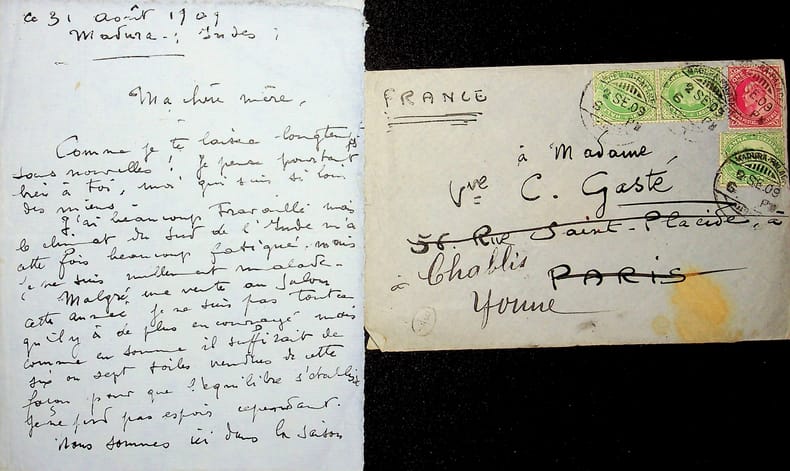 ce 31 août 1909
Madura - ; Indes ;
Ma chère mère,
Comme je te laisse longtemps
sans nouvelles ! Je pense pourtant
bien à toi, moi qui suis si loin
des miens !
J'ai beaucoup travaillé mais
le climat du Sud de l'Inde m'a
cette fois beaucoup fatigué. mais
je ne suis nullement malade.
Malgré une vente au Salon
cette année je ne suis pas toutce
qu'il y à de plus encouragé mais
comme en somme il suffirait de
six ou sept toiles vendues de cette
façon pour que l'equilibre s'établisse
je ne perd pas espoir cependant.
Nous sommes ici dans la saison
FRANCE
à Madame,
Vve C. Gasté
56. Rue Saint-Placide, à
PARIS
à Chablis
Yonne
MADURA
2 SE 09
6 PM
MADURA
2 SE 09
6 PM